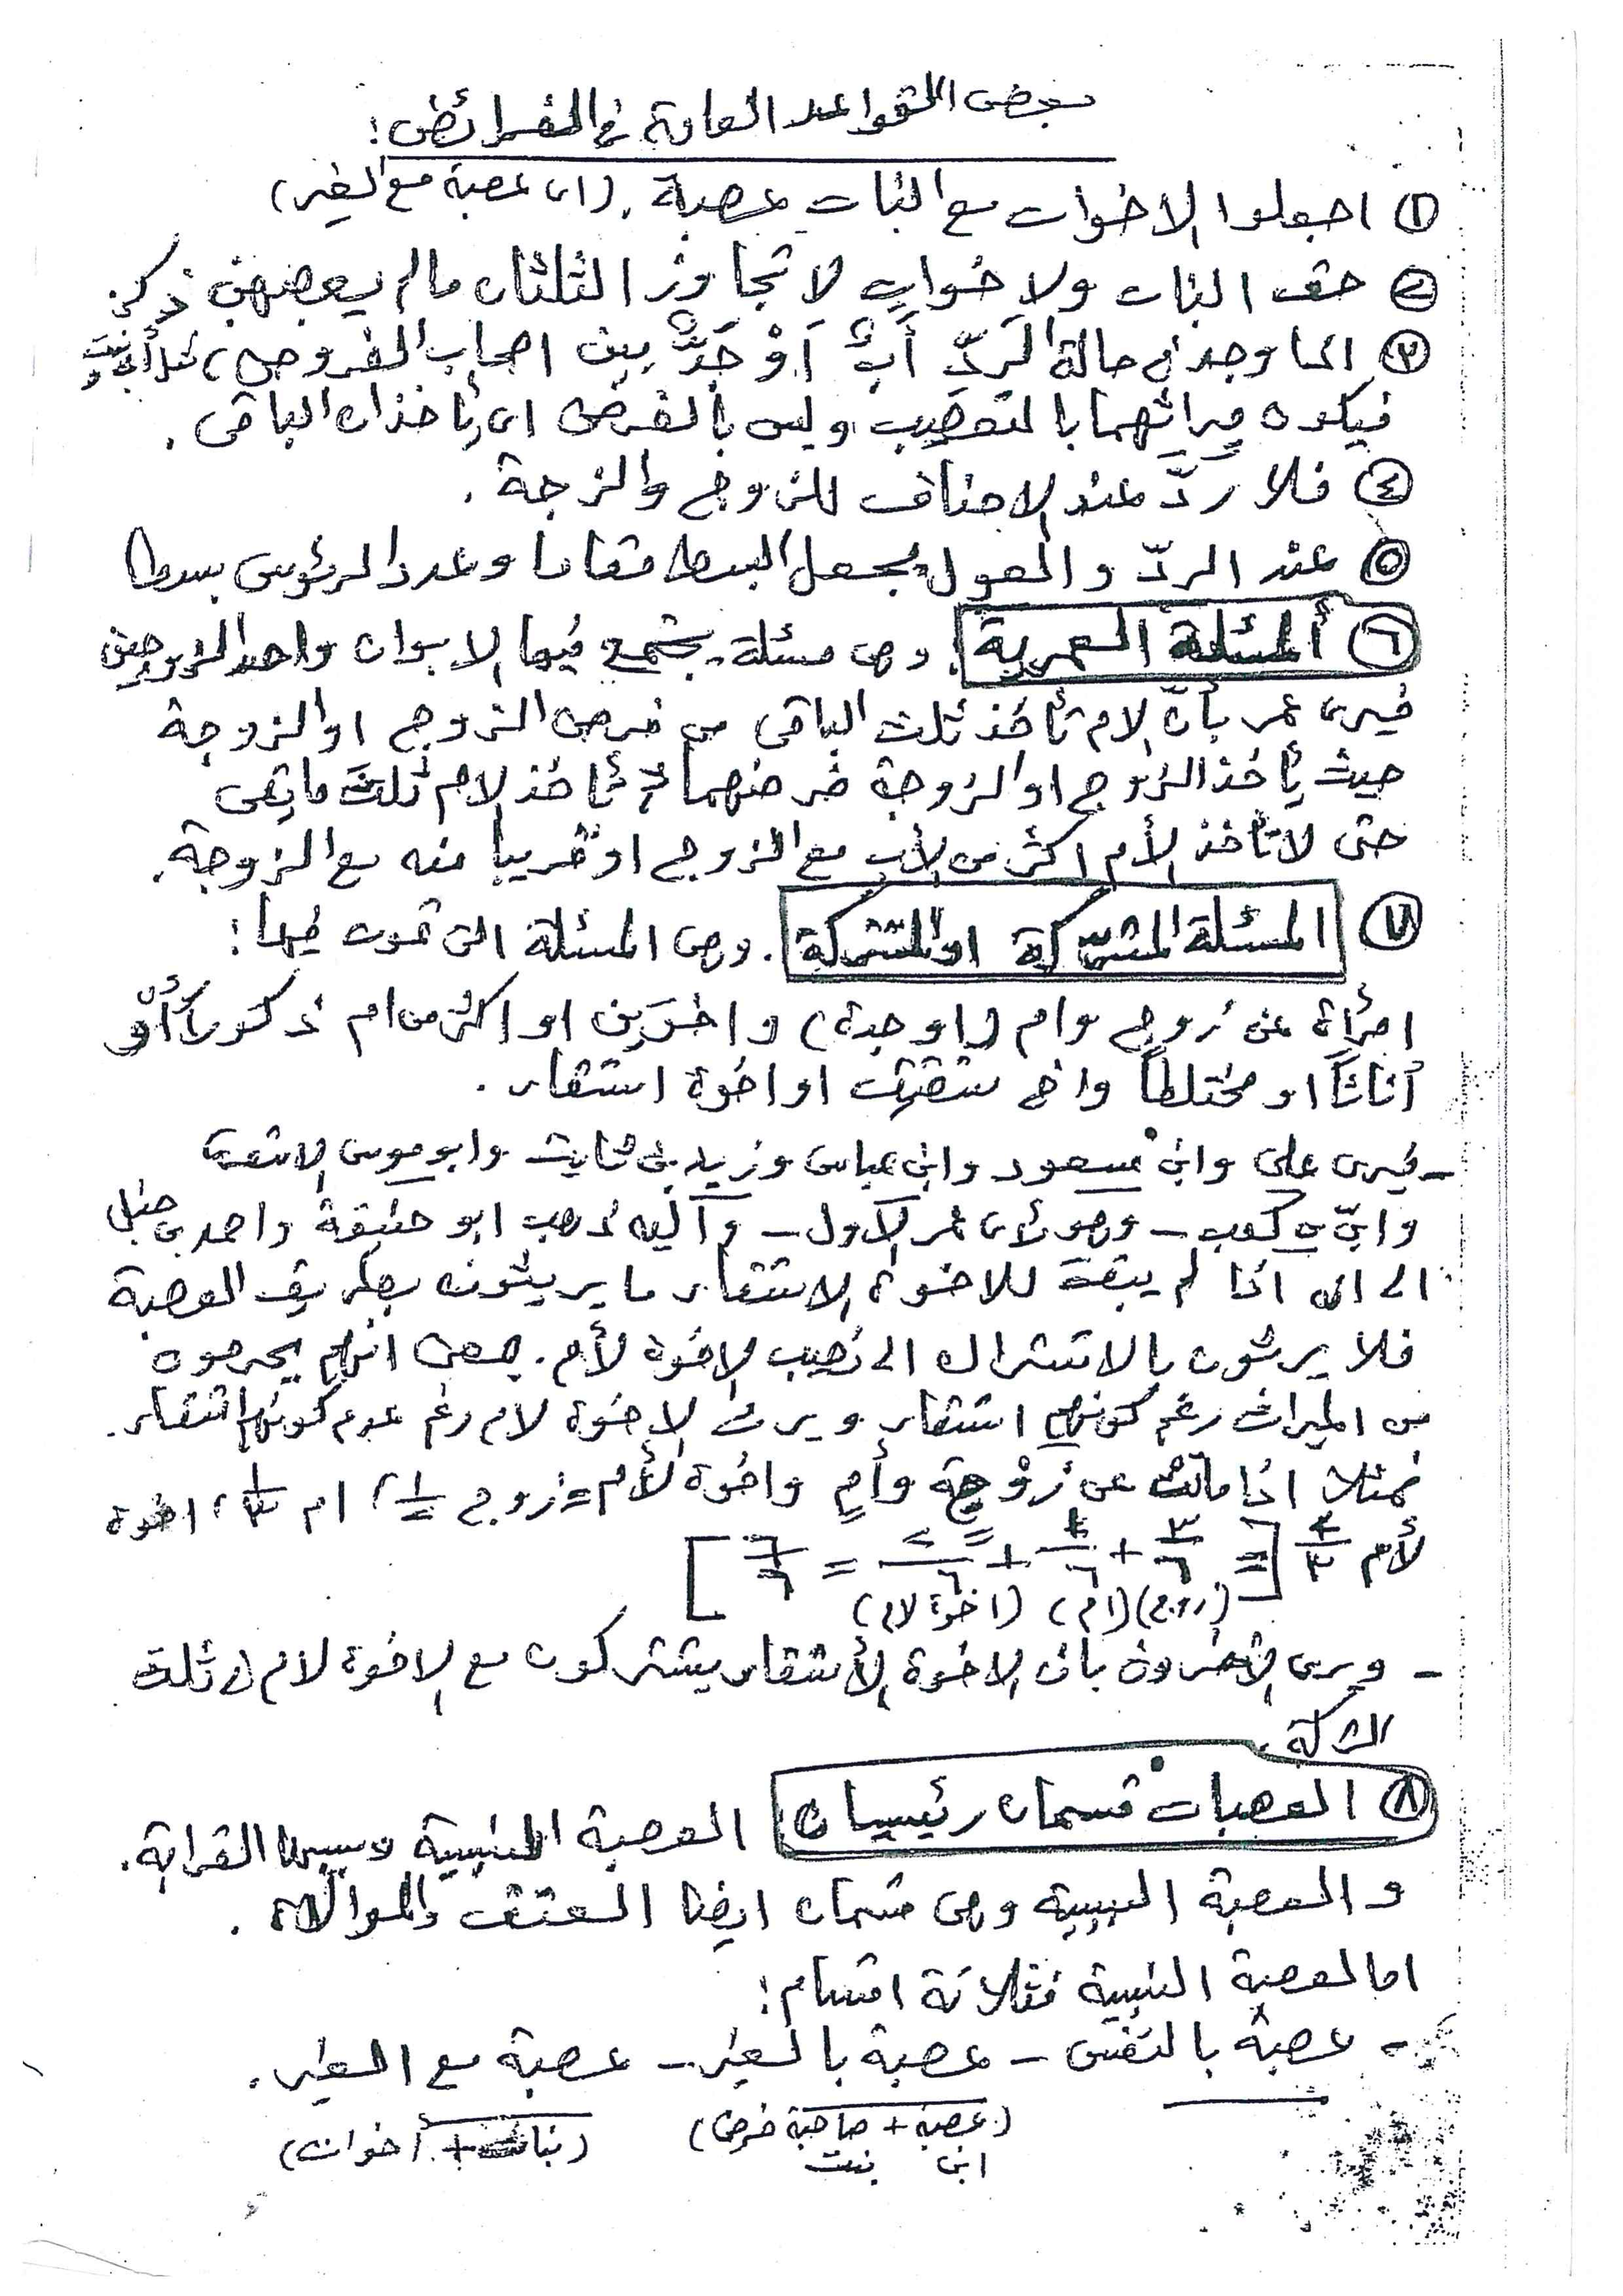 بعض القواعد العامة في الفرائض:
① اجعلوا الاخوات مع البنات عصبة. (اى عصبة مع الغير)
② حق البنات والاخوات لا تجاوز الثلثان مالم يعصبهن ذكر.
③ اذا وجد في حالة الردّ أبٌ أوْ جَدٌّ بين اصحاب الفروض،
فيكون ميراثهما بالتعصيب وليس بالفرض اى يأخذان الباقى.
④ فلا ردّ عند الاحناف للزوج والزوجة.
⑤ عند الردّ والعول يجعل البسط مقاما وعدد الرئوس بسطا
⑥ ألمسئلة العمرية. وهى مسئلة يجتمع فيها الابوان واحد الزوجين
فيرى عمر بأنّ الام تأخذ ثلث الباقى من فرض الزوج او الزوجة
حيث يأخذ الزوج او الزوجة فرضهما ثم تأخذ الام ثلث ما بقى
حتى لا تأخذ الأم اكثر من الأب مع الزوج او قريبا منه مع الزوجة.
⑦ المسئلة المشرّكة او المشتركة. وهى المسئلة التى تموت فيها:
امرأة عن زوج وام (او جدة) واخوَين او اكثر من ام ذكوراً أو
أناثاً او مختلطاً واخ شقيق او اخوة اشقاء.
- فيرى على وابن مسعود وابن عباس وزيد بن ثابت وابو موسى الاشعرى
وابىّ بن كعب - وهو رأى عمر الاول - وآليه ذهب ابو حنيفة واحمد بن حنبل
الى ان اذا لم يبقَ للاخوة الاشقاء ما يرثونه بطريق العصبة
فلا يرثون بالاشتراك الى نصيب الاخوة لأم. بمعنى انهم يحرمون
من الميراث رغم كونهم اشقاء ويرث الاخوة لام رغم عدم كونهم اشقاء.
فمثلا اذا ماتت عن زوج وأم واخوة لأم = زوج ١/٢، ام، اخوة
لأم
(زوج) (ام) (اخوة لام)
- ويرى الآخرون بان الاخوة الأشقاء يشتركون مع الاخوة لام فى ثلث
التركة.
⑧ العصبات قسمان رئيسيان العصبة النسبية وسببها القرابة.
والعصبة السببية وهى قسمان ايضا العتق والموالاة.
اما العصبة النسبية فثلاثة اقسام:
- عصبة بالنفس - عصبة بالغير - عصبة مع الغير.
(عصبة + صاحبة فرض) (بنات + أخوات)
ابن بنت